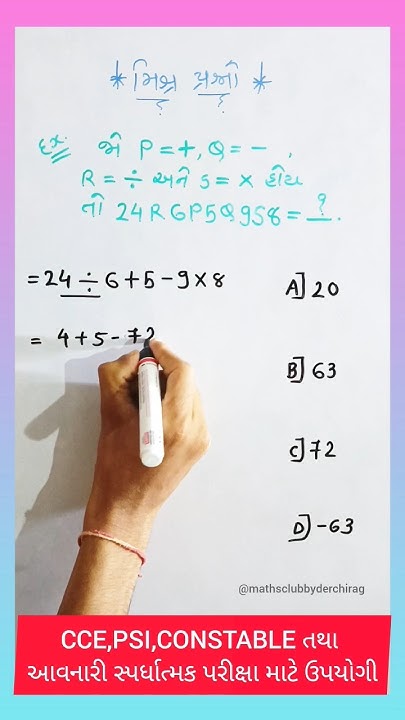 * મિશ્ર પ્રશ્નો *
Ex: જો P = +, Q = - ,
R = ÷ અને S = × હોય
તો 24R6P5Q9S8 = ?.
= 24 ÷ 6 + 5 - 9 × 8
= 4 + 5 - 72
A] 20
B] 63
C] 72
D] -63
@mathsclubbyderchirag
CCE,PSI,CONSTABLE તથા
આવનારી સ્પર્ધાત્મક પરીક્ષા માટે ઉપયોગી